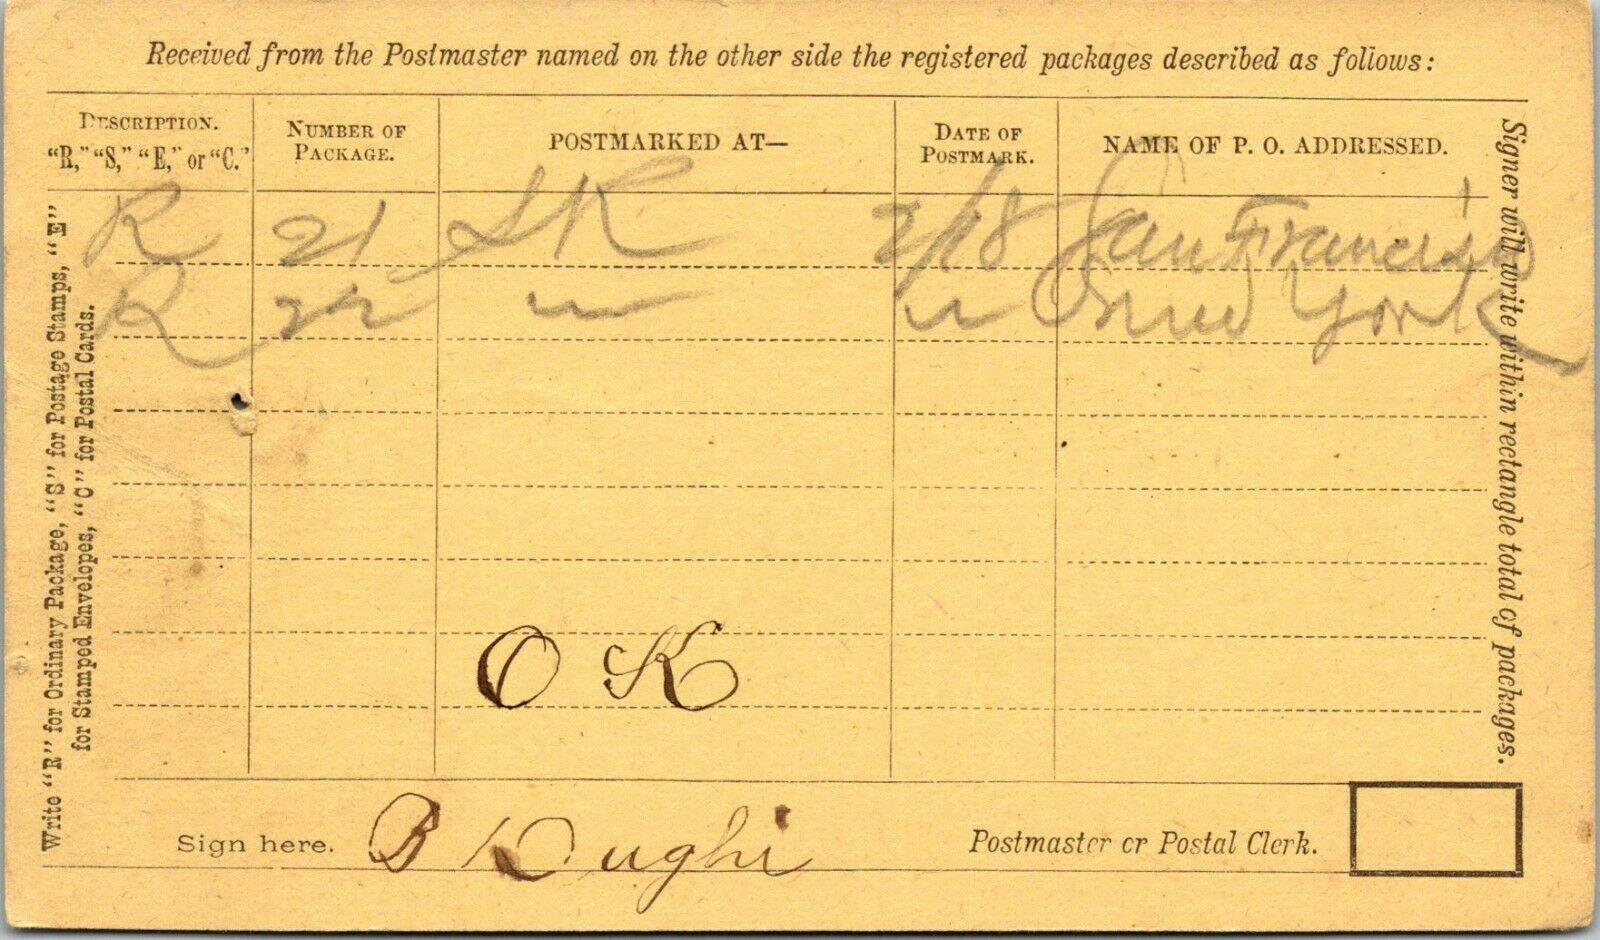 Received from the Postmaster named on the other side the registered packages described as follows:
DESCRIPTION. "R," "S," "E," or "C."
NUMBER OF PACKAGE.
POSTMARKED AT—
DATE OF POSTMARK.
NAME OF P. O. ADDRESSED.
R 21 SR 2/18 San Francisco
R 22 " " New York
O K
Sign here. B
Postmaster or Postal Clerk.
Write "R" for Ordinary Package, "S" for Postage Stamps, "E"
for Stamped Envelopes, "C" for Postal Cards.
Signer will write within rectangle total of packages.